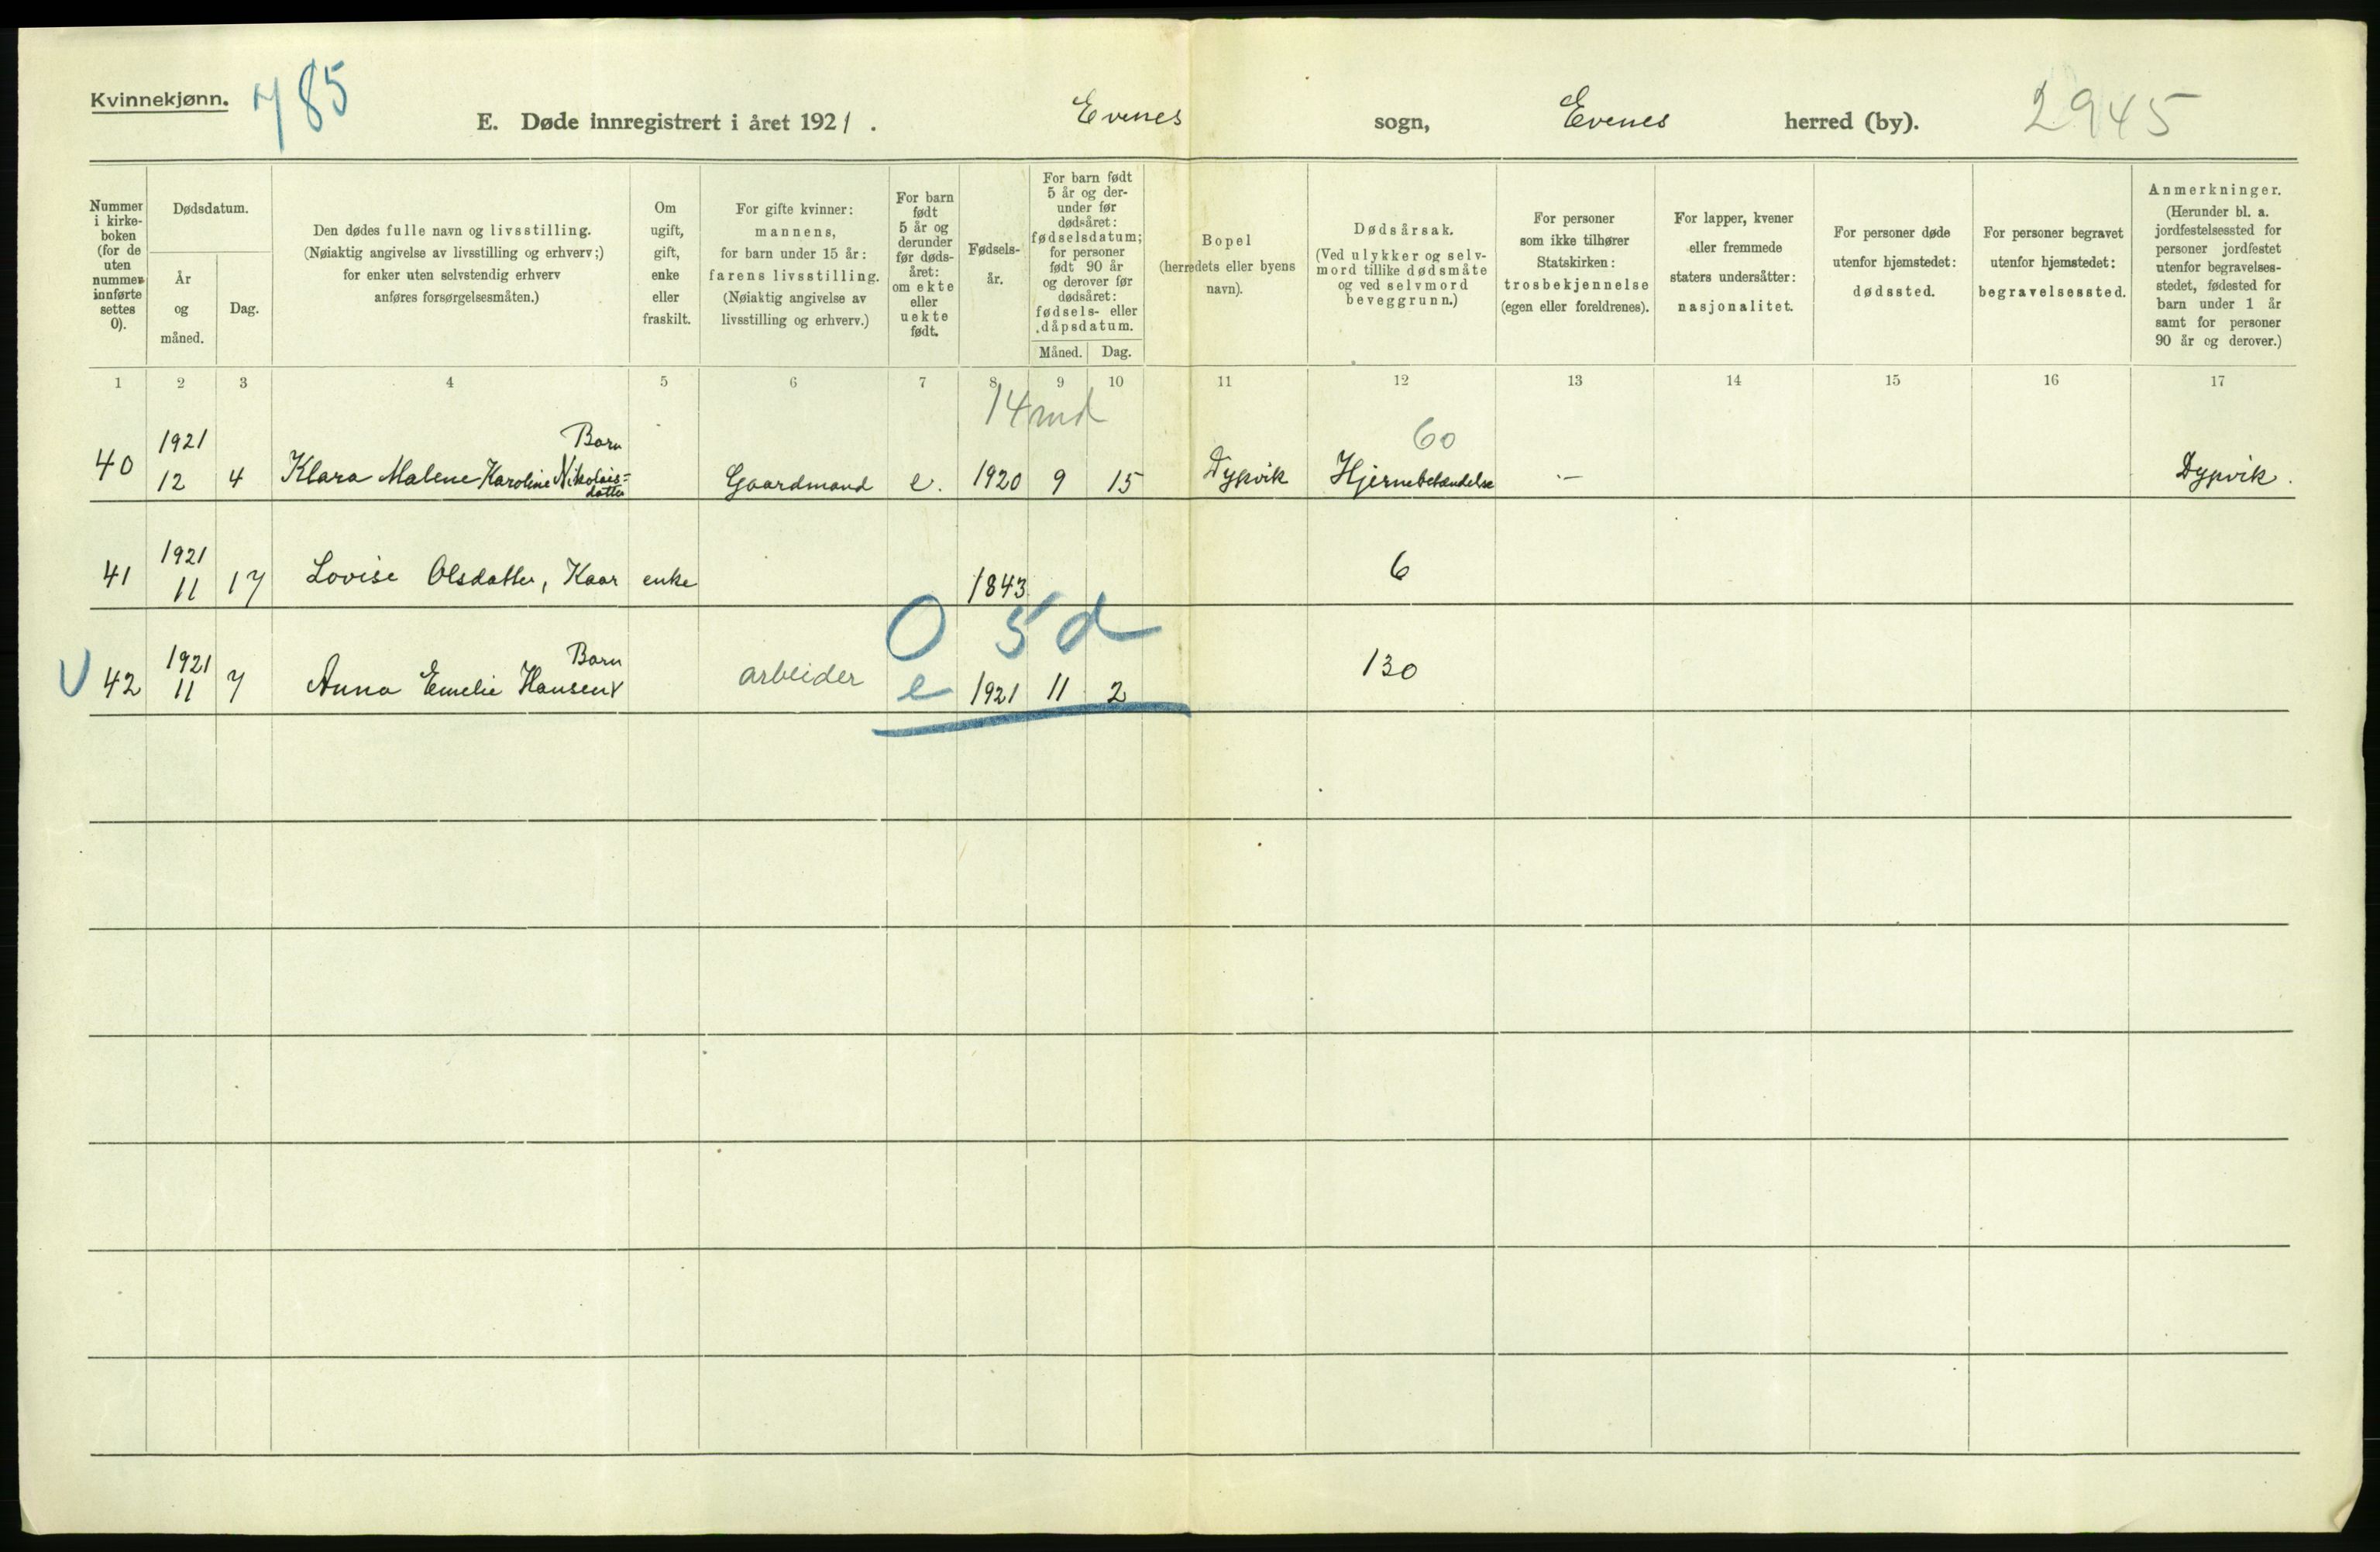 Kvinnekjønn.
785
E. Døde innregistrert i året 1921.
Evenes sogn,
Evenes herred (by).
2945
Nummer
i kirke-
boken
(for de
uten
nummer
innførte
settes
0).
Dødsdatum.
År
og
måned.
Dag.
Den dødes fulle navn og livsstilling.
(Nøiaktig angivelse av livsstilling og erhverv;)
for enker uten selvstendig erhverv
anføres forsørgelsesmåten.)
Om
ugift,
gift,
enke
eller
fraskilt.
For gifte kvinner:
mannens,
for barn under 15 år:
farens livsstilling.
(Nøiaktig angivelse av
livsstilling og erhverv.)
For barn
født
5 år og
derunder
før døds-
året:
om ekte
eller
uekte
født.
Fødsels-
år.
For barn født
5 år og der-
under før
dødsåret:
fødselsdatum;
for personer
født 90 år
og derover før
dødsåret:
fødsels- eller
dåpsdatum.
Måned. Dag.
Bopel
(herredets eller byens
navn).
Dødsårsak.
(Ved ulykker og selv-
mord tillike dødsmåte
og ved selvmord
beveggrunn.)
For personer
som ikke tilhører
Statskirken:
trosbekjennelse
(egen eller foreldrenes).
For lapper, kvener
eller fremmede
staters undersåtter:
nasjonalitet.
For personer døde
utenfor hjemstedet:
dødssted.
For personer begravet
utenfor hjemstedet:
begravelsessted.
Anmerkninger.
(Herunder bl. a.
jordfestelsessted for
personer jordfestet
utenfor begravelses-
stedet, fødested for
barn under 1 år
samt for personer
90 år og derover.)
1 2 3 4 5 6 7 8 9 10 11 12 13 14 15 16 17
14 md
1921 Barn 60
40 12 4 Klara Malene Karoline Nikolais=
datter
Gaardmand e. 1920 9 15 Dypvik Hjernebetændelse — Dypvik.
1921
41 11 17 Lovise Olsdatter, Kaar enke 1843 6
0 5 d
1921 Barn
V 42 11 7 Anna Emelie Hansen arbeider e 1921 11 2 130